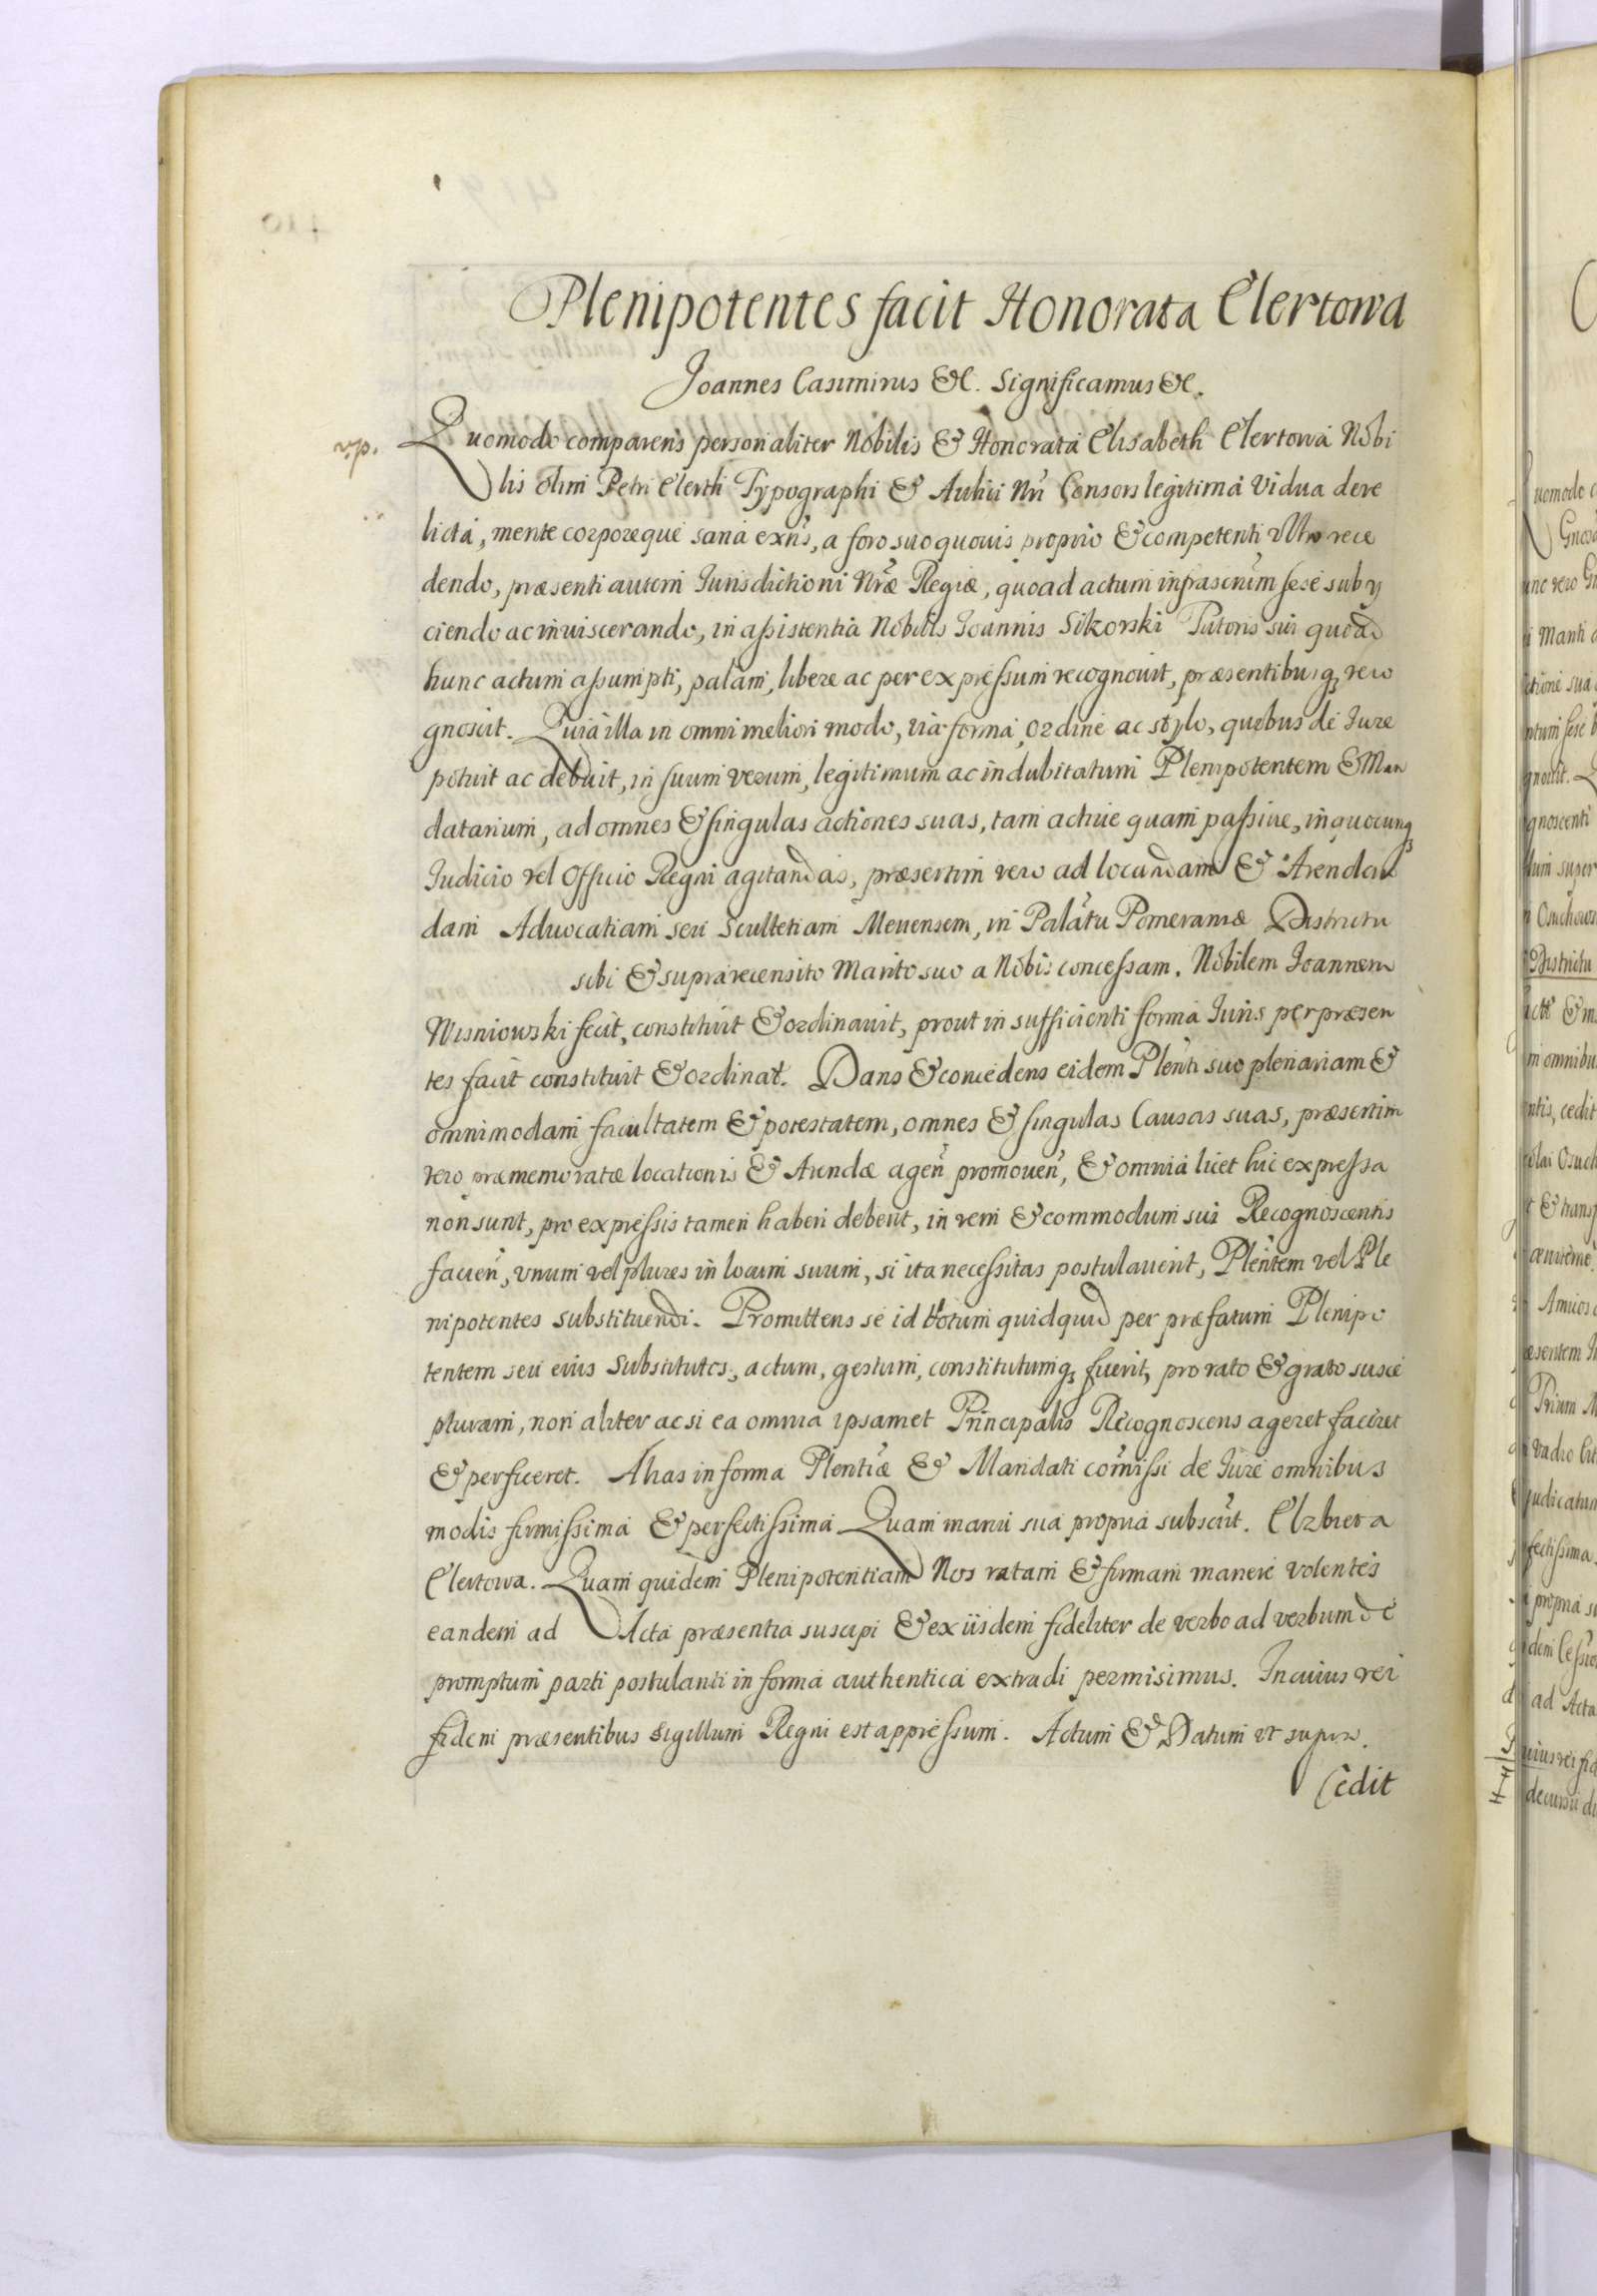 Plenipotentes facit Honorata Elertowa
Joannes Casimirus &c. Significamus &c.
vp.
Quomodo comparens personaliter Nobilis & Honorata Elisabeth Elertowa Nobi
lis olim Petri Elerth Typographi & Aulici Nri Consors legitima Vidua dere
licta, mente corporeque sana exñs, a foro suo quouis proprio & competenti Vltro rece
dendo, præsenti autem Jurisdictioni Nræ Regiæ, quoad actum infrascrũm sese subij
ciendo ac inuiscerando, in assistentia Nobilis Joannis Sikorski Tutoris sui quoad
hunc actum assumpti, palam, libere ac per expressum recognouit, præsentibusq reco
gnoscit. Quia illa in omni meliori modo, via forma, ordine ac stylo, quibus de Jure
potuit ac debuit, in suum verum, legitimum ac indubitatum Plenipotentem & Man
datarium, ad omnes & singulas actiones suas, tam actiue quam passiue, in quocunq
Judicio vel Officio Regni agitandas, præsertim vero ad locandam & Arendan
dam Aduocatiam seu Scultetiam Meuensem, in Palãtu Pomeraniæ Districtu
sibi & supra recensito Marito suo a Nobis concessam. Nobilem Joannem
Wisniowski fecit, constituit & ordinauit, prout in sufficienti forma Juris per præsen
tes facit constituit & ordinat. Dans & concedens eidem Pleñti suo plenariam &
omnimodam facultatem & potestatem, omnes & singulas Causas suas, præsertim
vero præmemoratæ locationis & Arendæ ageñ promoueñ, & omnia licet hic expressa
non sunt, pro expressis tamen haberi debent, in rem & commodum sui Recognoscentis
facieñ, vnum vel plures in locum suum, si ita necessitas postulauerit, Pleñtem vel Ple
nipotentes substituendi. Promittens se id totum quidquid per præfatum Plenipo
tentem seu eius Substitutos, actum, gestum, constitutumq fuerit, pro rato & grato susce
pturam, non aliter ac si ea omnia ipsamet Principalis Recognoscens ageret faceret
& perficeret. Alias in forma Plentiæ & Mandati com̃issi de Jure omnibus
modis firmissima & perfectissima Quam manu sua propria subscrit. Elzbieta
Elertowa. Quam quidem Plenipotentiam Nos ratam & firmam manere volentes
eandem ad Acta præsentia suscipi & ex iisdem fideliter de verbo ad verbum de
promptum parti postulanti in forma authentica extradi permisimus. In cuius rei
fidem præsentibus Sigillum Regni est appressum. Actum & Datum vt supra.
Cedit